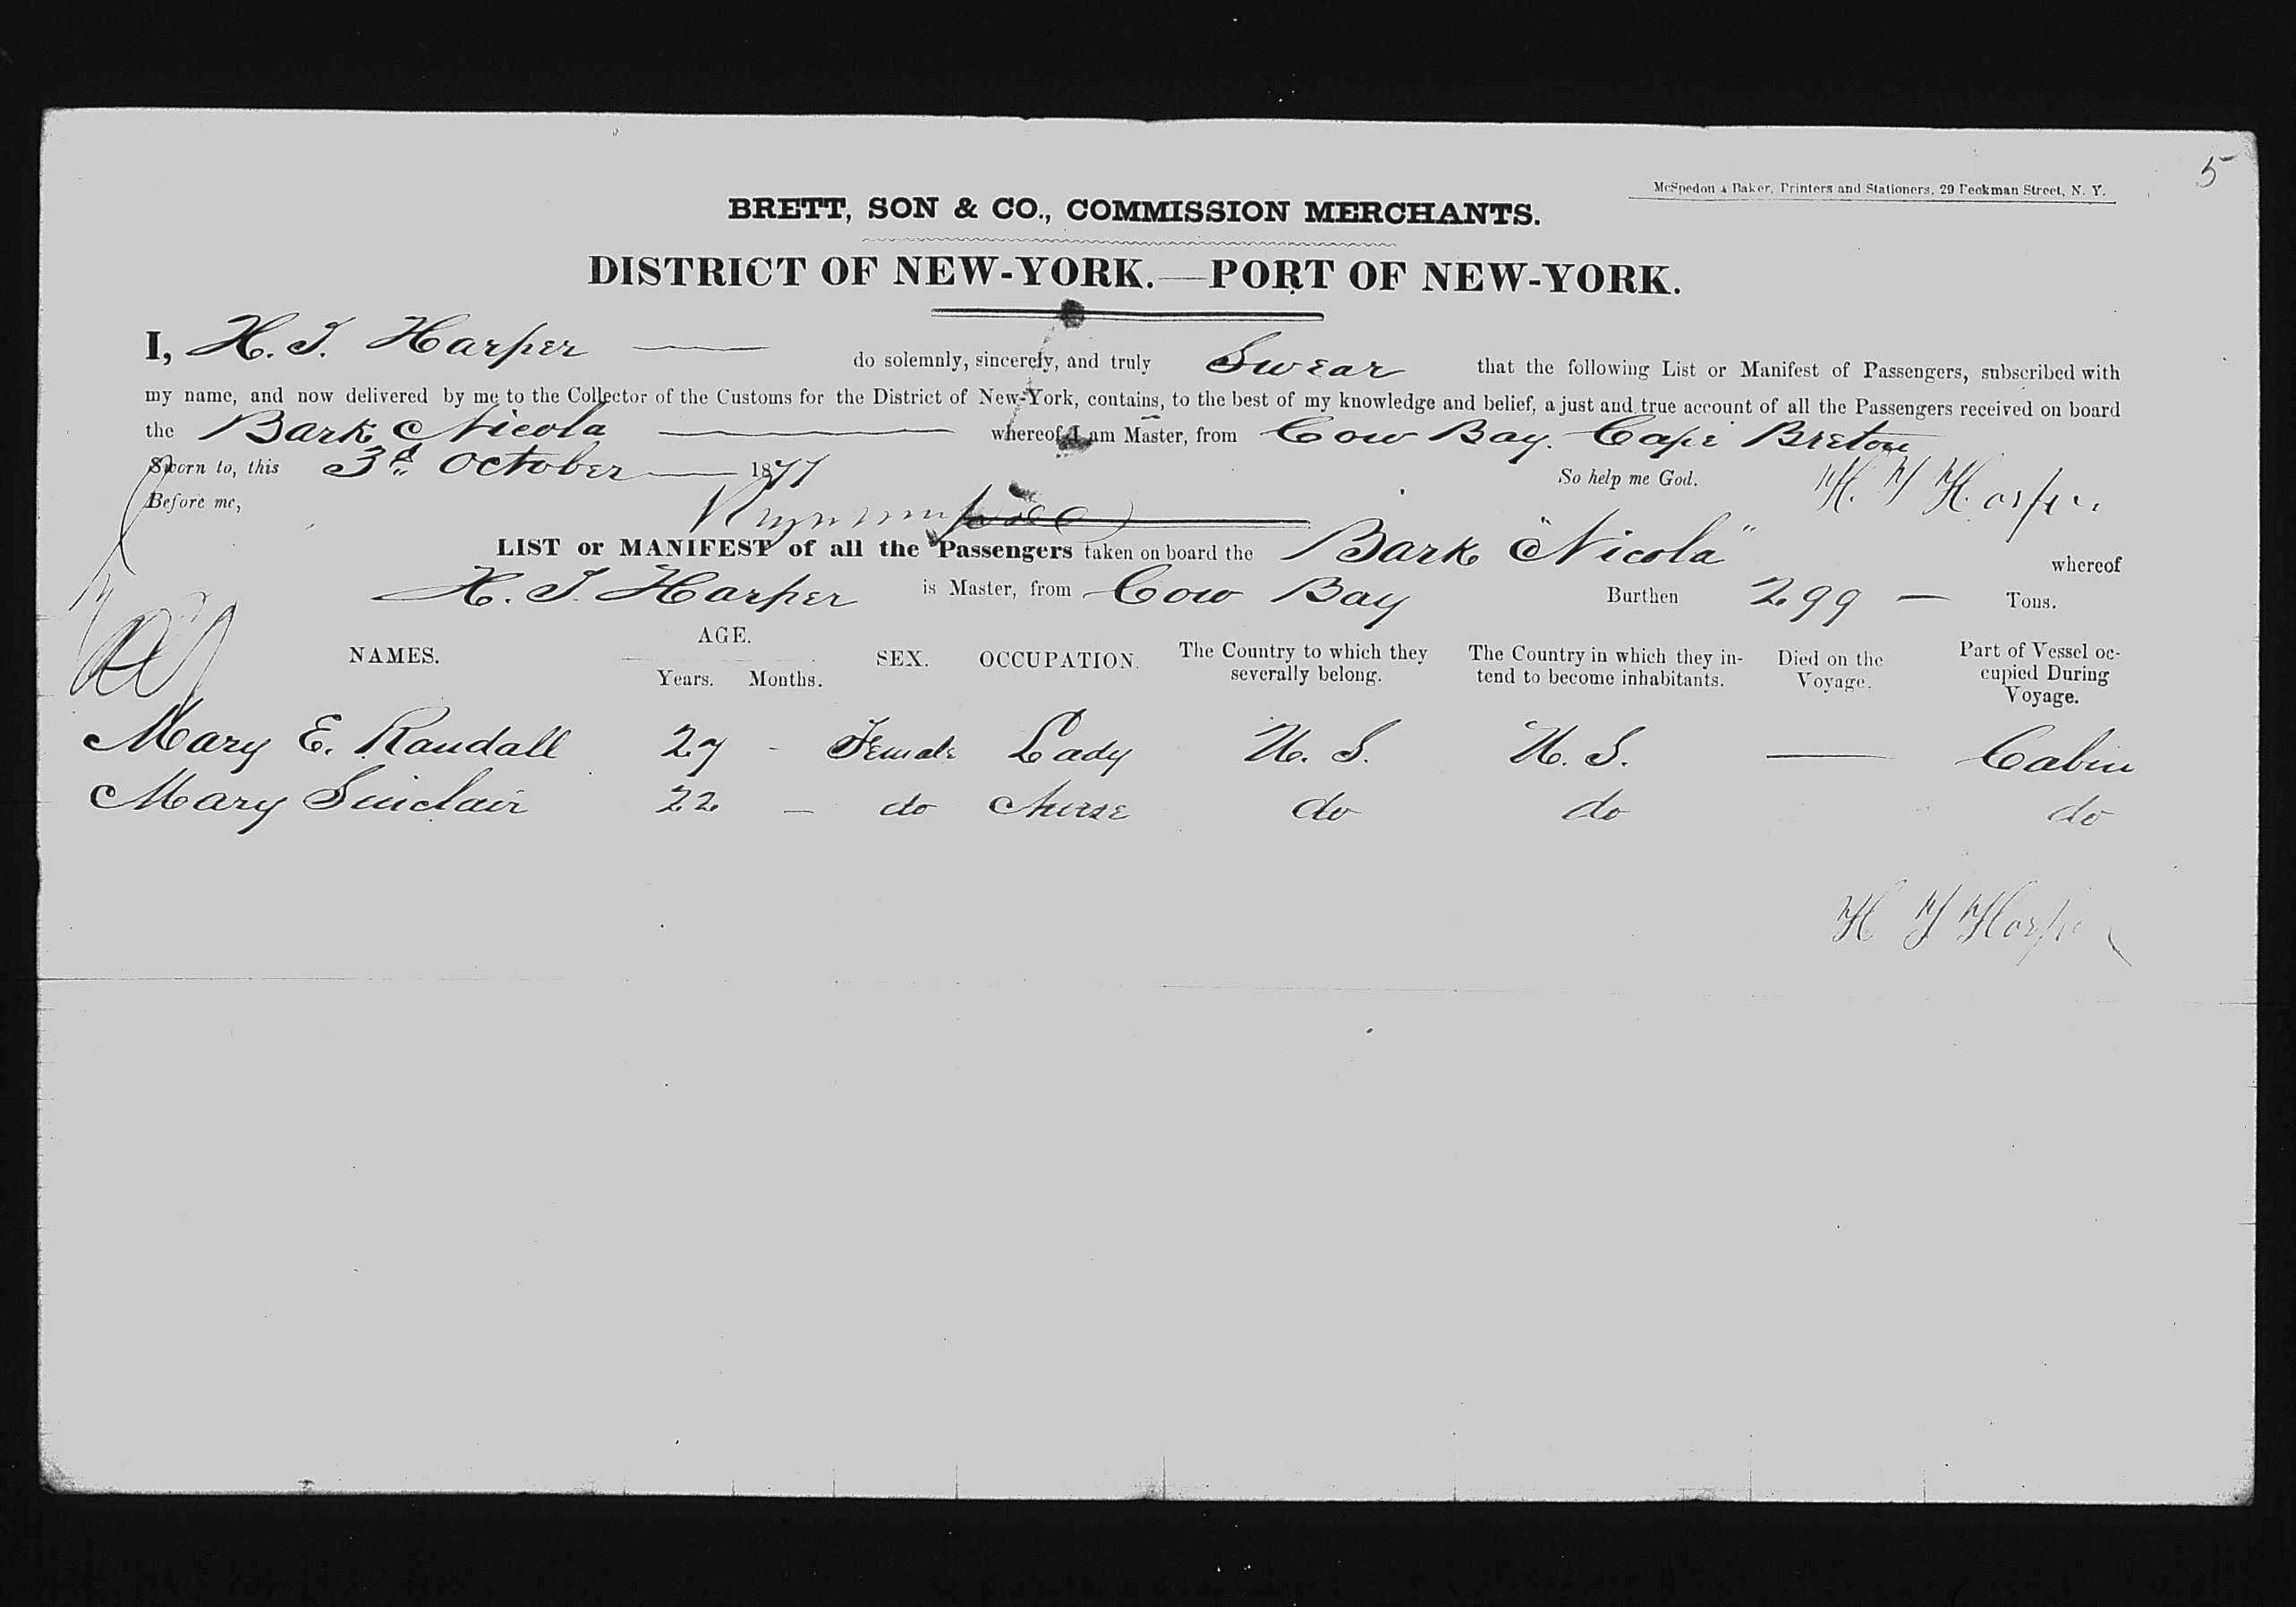 5
McSpedon & Baker, Printers and Stationers, 29 Beekman Street, N. Y.
BRETT, SON & CO., COMMISSION MERCHANTS.
DISTRICT OF NEW-YORK.—PORT OF NEW-YORK.
I, H. T. Harper — do solemnly, sincerely, and truly Swear that the following List or Manifest of Passengers, subscribed with
my name, and now delivered by me to the Collector of the Customs for the District of New-York, contains, to the best of my knowledge and belief, a just and true account of all the Passengers received on board
the Bark Nicola — whereof I am Master, from Cow Bay. Cape Breton
Sworn to, this 3d October — 1877 So help me God. H. T Harper
Before me,
LIST or MANIFEST of all the Passengers taken on board the Bark "Nicola" whereof
H. T. Harper is Master, from Cow Bay Burthen 299 — Tons.
NAMES. AGE. Years. Months. SEX. OCCUPATION. The Country to which they severally belong. The Country in which they intend to become inhabitants. Died on the Voyage. Part of Vessel occupied During Voyage.
Mary E. Randall 27 - Female Lady U. S. U. S. — Cabin
Mary Sinclair 22 — do Nurse do do do
H T Harper